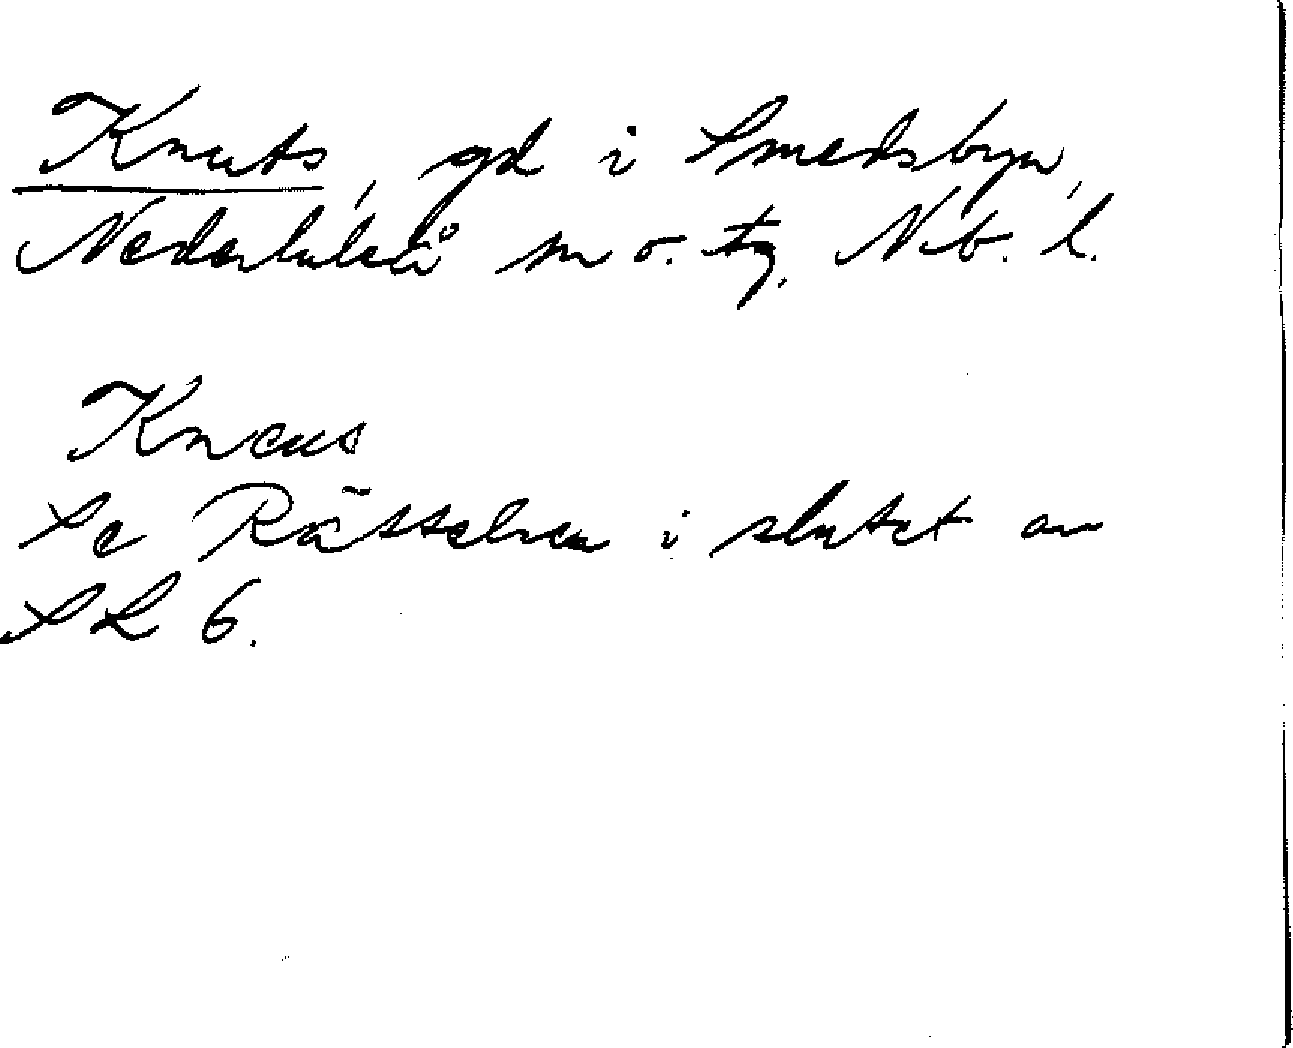 Knuts, gd i Smedsbyn,
Nederluleå sn o. tg, Nb. l.
Kneus
Se Rättelser i slutet av
SL 6.